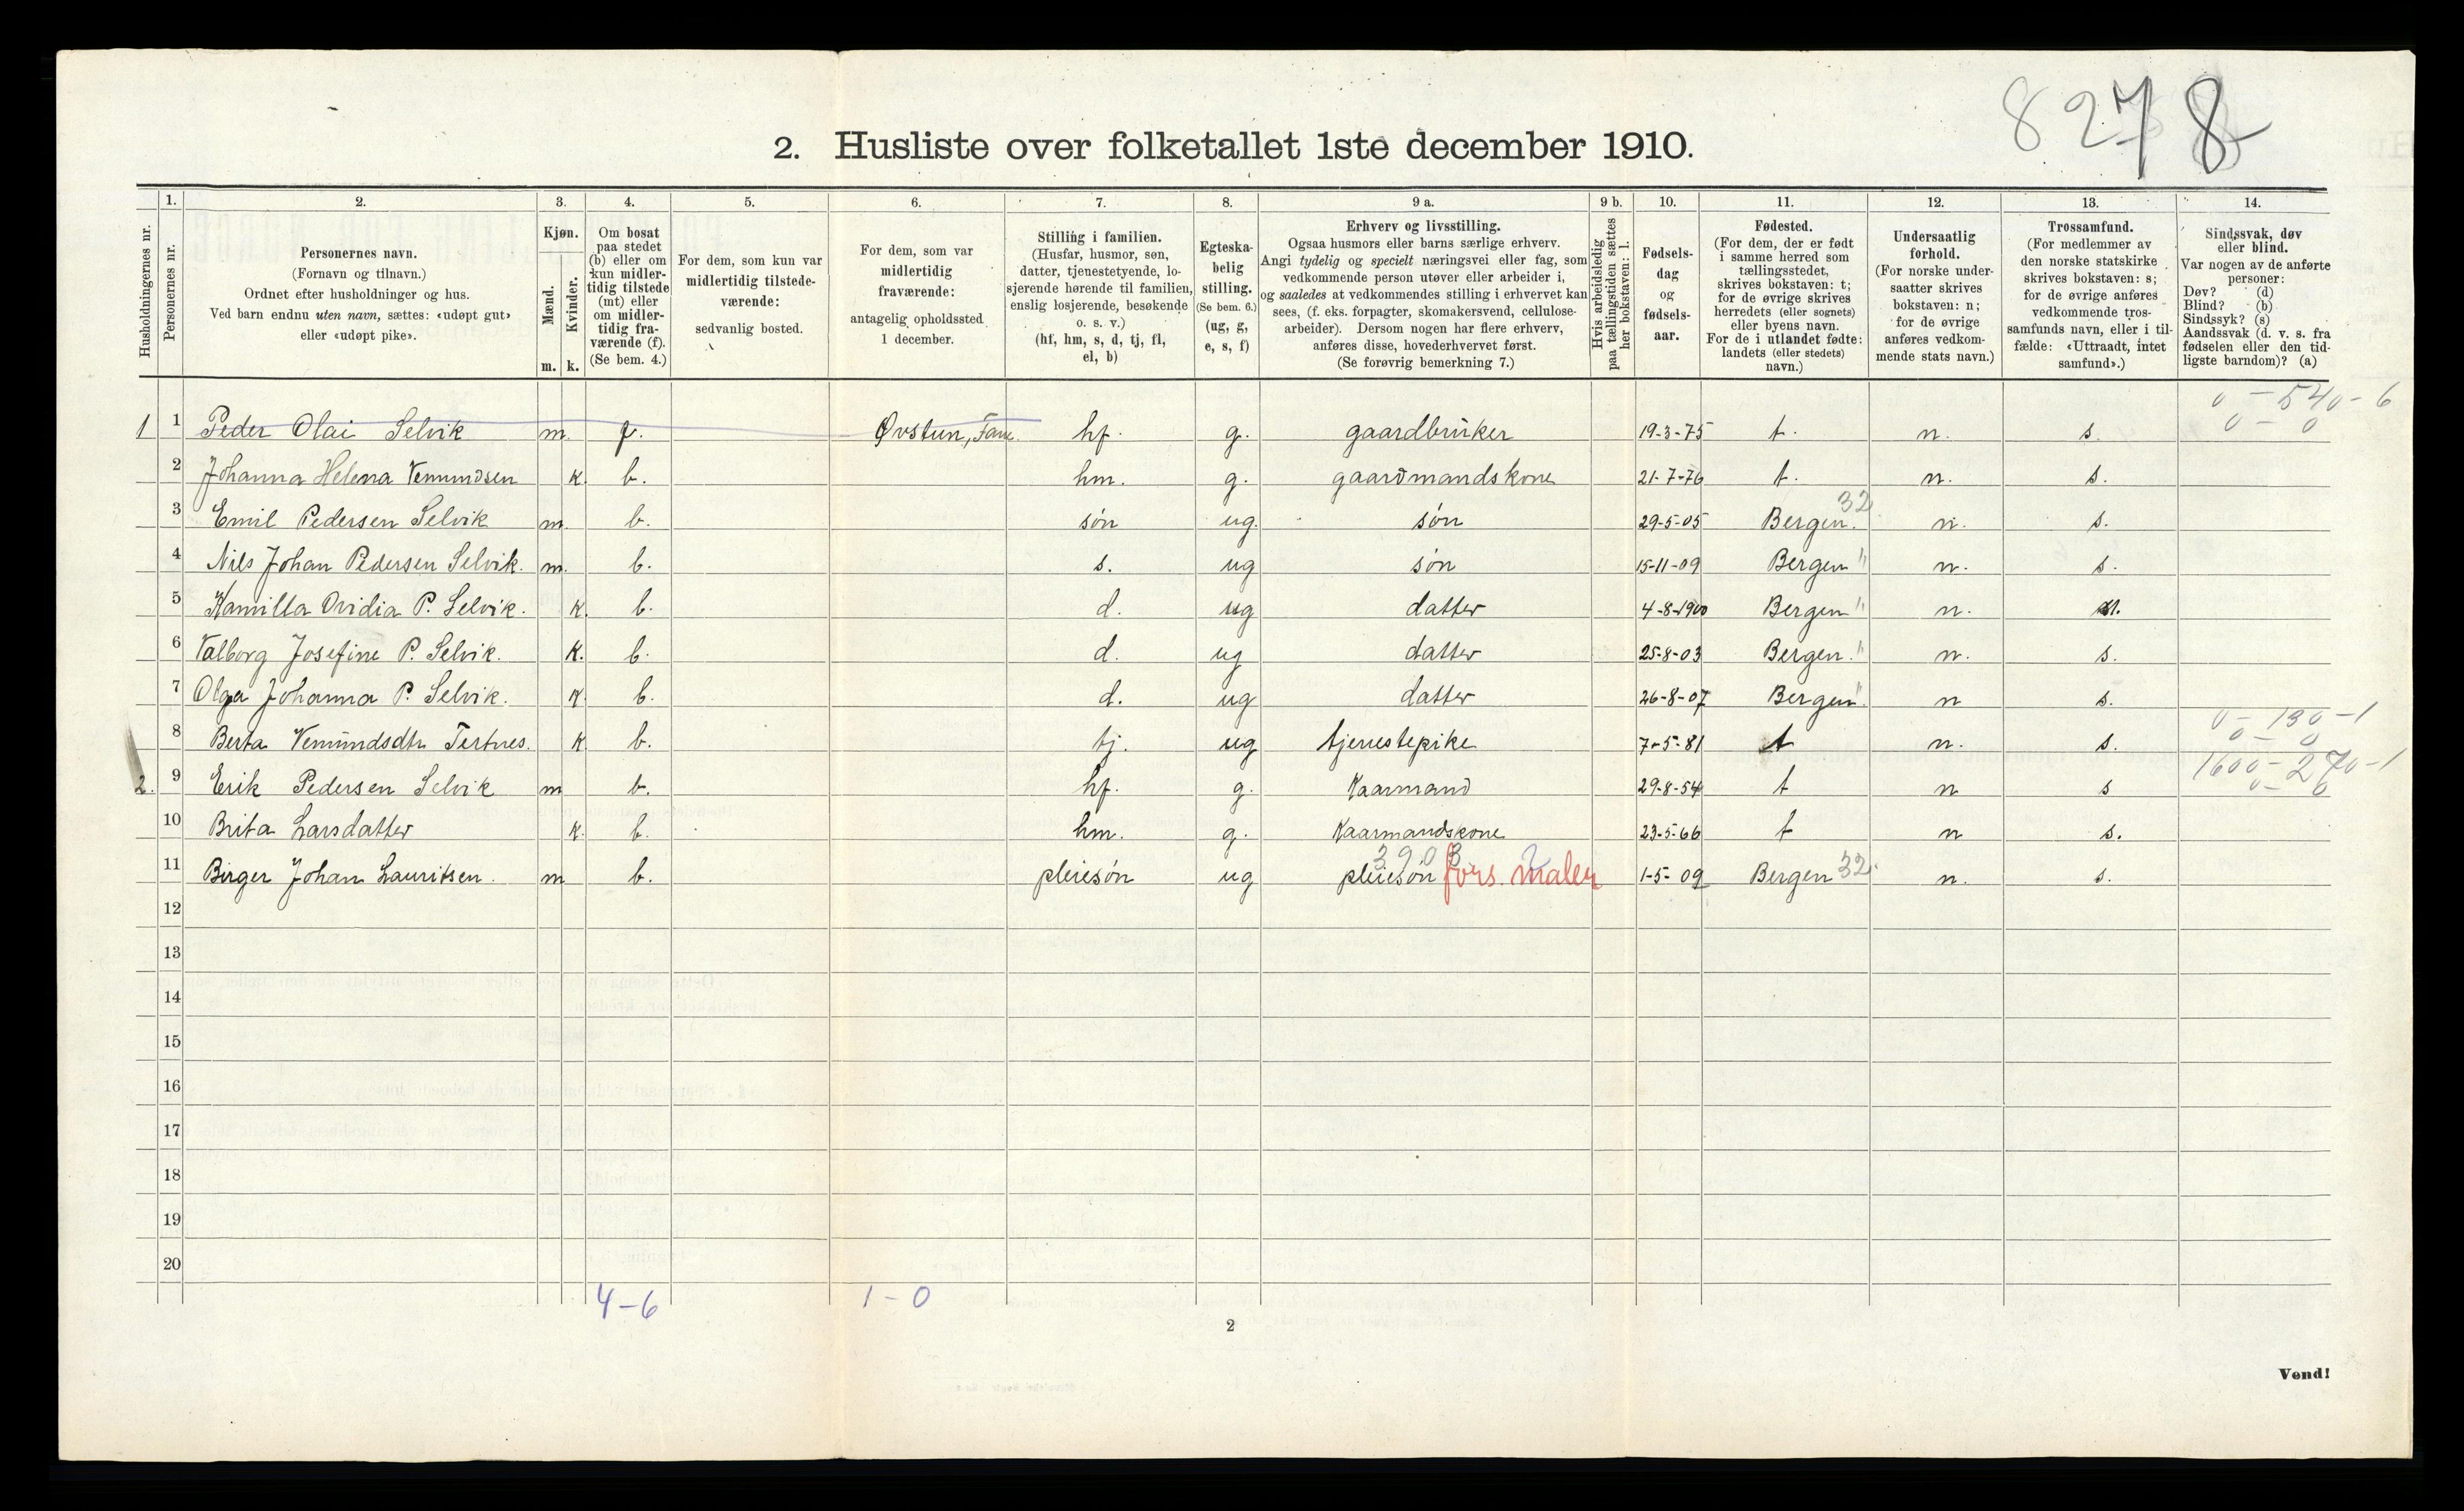 8278
2. Husliste over folketallet 1ste december 1910.
Husholdningernes nr.
1.
Personernes nr.
2.
Personernes navn.
(Fornavn og tilnavn.)
Ordnet efter husholdninger og hus.
Ved barn endnu uten navn, sættes: «udøpt gut»
eller «udøpt pike».
3.
Kjøn.
Mænd.
Kvinder.
m. k.
4.
Om bosat
paa stedet
(b) eller om
kun midler-
tidig tilstede
(mt) eller
om midler-
tidig fra-
værende (f).
(Se bem. 4.)
5.
For dem, som kun var
midlertidig tilstede-
værende:
sedvanlig bosted.
6.
For dem, som var
midlertidig
fraværende:
antagelig opholdssted
1 december.
7.
Stilling i familien.
(Husfar, husmor, søn,
datter, tjenestetyende, lo-
sjerende hørende til familien,
enslig losjerende, besøkende
o. s. v.)
(hf, hm, s, d, tj, fl,
el, b)
8.
Egteska-
belig
stilling.
(Se bem. 6.)
(ug, g,
e, s, f)
9 a.
Erhverv og livsstilling.
Ogsaa husmors eller barns særlige erhverv.
Angi tydelig og specielt næringsvei eller fag, som
vedkommende person utøver eller arbeider i,
og saaledes at vedkommendes stilling i erhvervet kan
sees, (f. eks. forpagter, skomakersvend, cellulose-
arbeider). Dersom nogen har flere erhverv,
anføres disse, hovederhvervet først.
(Se forøvrig bemerkning 7.)
9 b.
Hvis arbeidsledig
paa tællingstiden sættes
her bokstaven: l.
10.
Fødsels-
dag
og
fødsels-
aar.
11.
Fødested.
(For dem, der er født
i samme herred som
tællingsstedet,
skrives bokstaven: t;
for de øvrige skrives
herredets (eller sognets)
eller byens navn.
For de i utlandet fødte:
landets (eller stedets)
navn.)
12.
Undersaatlig
forhold.
(For norske under-
saatter skrives
bokstaven: n;
for de øvrige
anføres vedkom-
mende stats navn.)
13.
Trossamfund.
(For medlemmer av
den norske statskirke
skrives bokstaven: s;
for de øvrige anføres
vedkommende tros-
samfunds navn, eller i til-
fælde: «Uttraadt, intet
samfund».)
14.
Sindssvak, døv
eller blind.
Var nogen av de anførte
personer:
Døv? (d)
Blind? (b)
Sindssyk? (s)
Aandssvak (d. v. s. fra
fødselen eller den tid-
ligste barndom)? (a)
0 - 540 - 6
0 - 0
1 1 Peder Olai Selvik m. f. Øvstun, Fane. hf. g. gaardbruker 19-3-75 t. n. s.
2 Johanna Helena Vemundsen k. b. hm. g. gaardmandskone 21-7-76 t. n. s.
3 Emil Pedersen Selvik m. b. søn ug. søn 29-5-05 Bergen. 32 n. s.
4 Nils Johan Pedersen Selvik. m. b. s. ug søn 15-11-09 Bergen " n. s.
5 Kamilla Ovidia P. Selvik. k. b. d. ug datter 4-8-1900 Bergen " n.
6 Valborg Josefine P. Selvik. k. b. d. ug datter 25-8-03 Bergen. " n. s.
7 Olga Johanna P. Selvik. k. b. d. ug datter 26-8-07 Bergen " n s.
8 Berta Vemundsdtr Tertnes. k. b. tj. ug tjenestepike 7-5-81 t n. s. 0 - 130 - 1
0 - 0
2. 9 Erik Pedersen Selvik m b. hf. g. Kaarmand 29-8-54 t n s 1600 - 270 - 1
0 - 0
10 Brita Larsdatter k. b. hm. g. Kaarmandskone 23-5-66 t n s.
11 Birger Johan Lauritsen. m b. pleiesøn ug pleiesøn 3903 fors. maler 1-5-09 Bergen 32 n. s.
12
13
14
15
16
17
18
19
20
4-6 1-0
2
Vend!